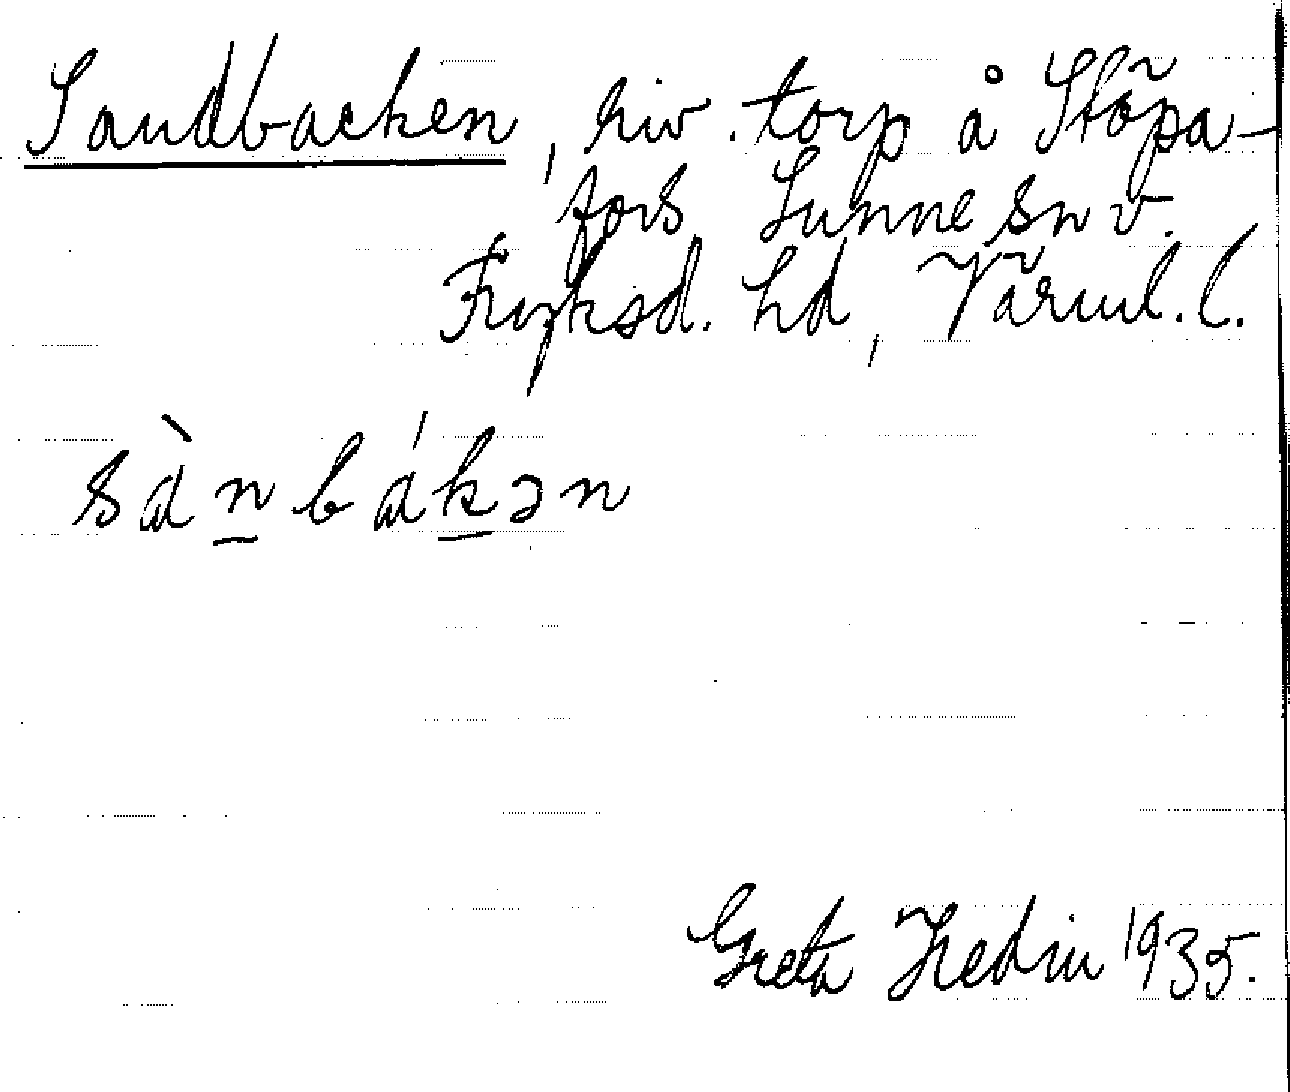 Sandbacken, riv. torp å Stöpa-
fors, Sunne sn v.
Fryksd. hd, Värml. l.
sànbákən
Greta Hedin 1935.